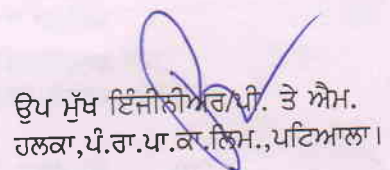 ਉਪ ਮੁੱਖ ਇੰਜੀਨੀਅਰ/ਪੀ. ਤੇ ਐਮ.
ਹਲਕਾ,ਪੰ.ਰਾ.ਪਾ.ਕਾ.ਲਿਮ.,ਪਟਿਆਲਾ।